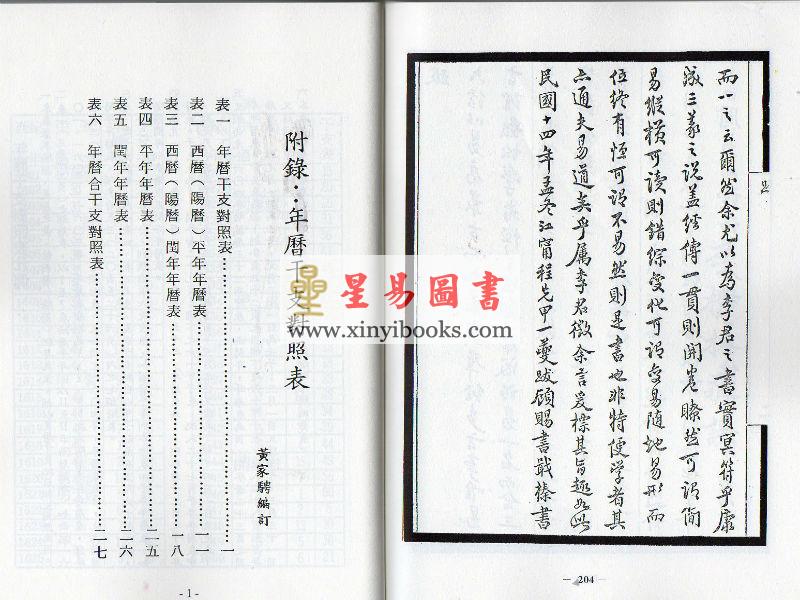 而一之云爾然余尤以為李君之書實冥符乎康
成三義之說蓋經傳一貫則開卷瞭然可謂簡
易縱橫可讀則錯綜變化可謂變易隨地易形而
位終有恆可謂不易然則是書也非特便學者其
亦通夫易道矣乎属李君徵余言爰標其旨趣如此
民國十四年孟冬江甯程先甲一夔跋顧賜書戩蓁書
— 204 —
附錄：年曆干支對照表
黃家騁編訂
表一 年曆干支對照表……一
表二 西曆（陽曆）平年年曆表……一一
表三 西曆（陽曆）閏年年曆表……一八
表四 平年年曆表……二五
表五 閏年年曆表……二六
表六 年曆合干支對照表……二七
- 1 -
星易圖書
www.xinyibooks.com